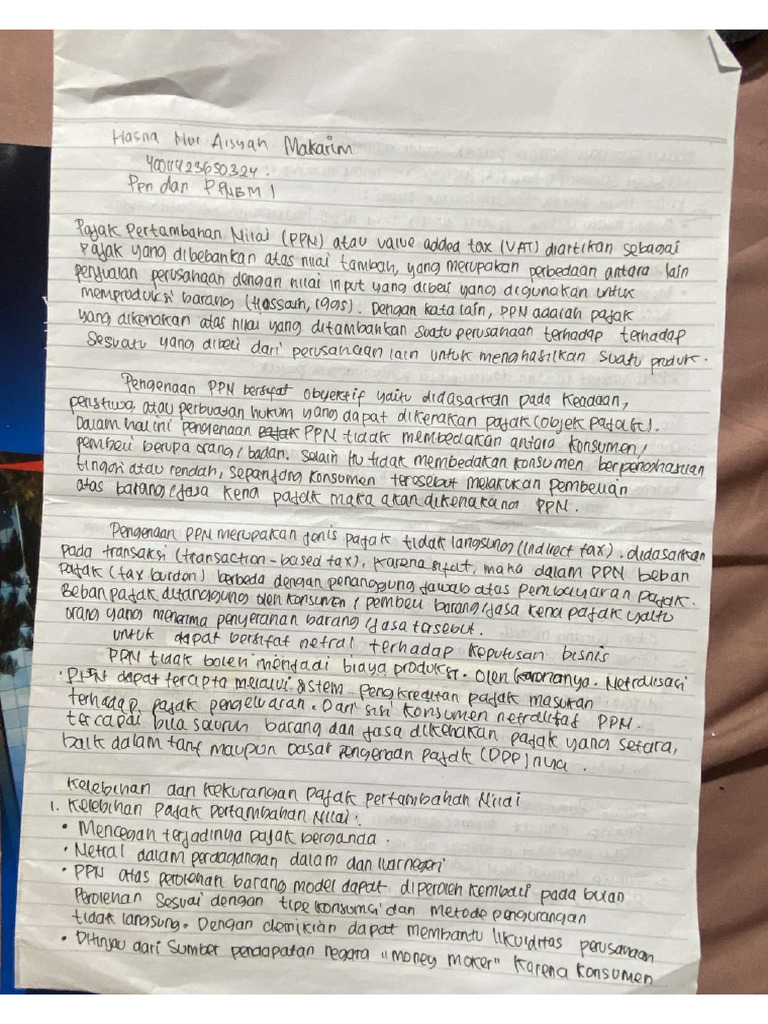 Hasna Nur Aisyah Makarim
40011423650324.
Ppn dan PPNBM 1
Pajak Pertambahan Nilai (PPN) atau value added tax (VAT) diartikan sebagai
pajak yang dibebankan atas nilai tambah, yang merupakan perbedaan antara lain
penjualan perusahaan dengan nilai input yang dibeli yang digunakan untuk
memproduksi barang (Hossain, 1995). Dengan kata lain, PPN adalah pajak
yang dikenakan atas nilai yang ditambahkan suatu perusahaan terhadap terhadap
sesuatu yang dibeli dari perusahaan lain untuk menghasilkan suatu produk.
Pengenaan PPN bersifat objektif yaitu didasarkan pada keadaan,
peristiwa, atau perbuatan hukum yang dapat dikenakan pajak (objek pajak).
Dalam hal ini pengenaan pajak PPN tidak membedakan antara konsumen/
pembeli berupa orang/badan. Selain itu tidak membedakan konsumen berpenghasilan
tinggi atau rendah, sepanjang konsumen tersebut melakukan pembelian
atas barang/jasa kena pajak maka akan dikenakan PPN.
Pengenaan PPN merupakan jenis pajak tidak langsung (Indirect tax). didasarkan
pada transaksi (transaction-based tax), karena sifat, maka dalam PPN beban
pajak (tax burdon) berbeda dengan penanggung jawab atas pembayaran pajak.
Beban pajak ditanggung oleh konsumen / pembeli barang/jasa kena pajak yaitu
orang yang menerima penyerahan barang/jasa tersebut.
untuk dapat bersifat netral terhadap keputusan bisnis
PPN tidak boleh menjadi biaya produksi. Oleh karenanya. Netralisasi
PPN dapat tercipta melalui sistem pengkreditan pajak masukan
terhadap pajak pengeluaran. Dari sisi konsumen netralitas PPN.
tercapai bila seluruh barang dan jasa dikenakan pajak yang setara,
baik dalam tarif maupun Dasar pengenaan Pajak (DPP)nya.
Kelebihan dan kekurangan Pajak Pertambahan Nilai
1. Kelebihan Pajak Pertambahan Nilai:
• Mencegah terjadinya pajak berganda.
• Netral dalam perdagangan dalam dan luar negeri
• PPN atas perolehan barang model dapat diperoleh kembali pada bulan
Perolehan sesuai dengan tipe konsumsi dan metode pengurangan
tidak langsung. Dengan demikian dapat membantu likuiditas perusahaan
• Ditinjau dari sumber pendapatan negara "money maker" karena konsumen